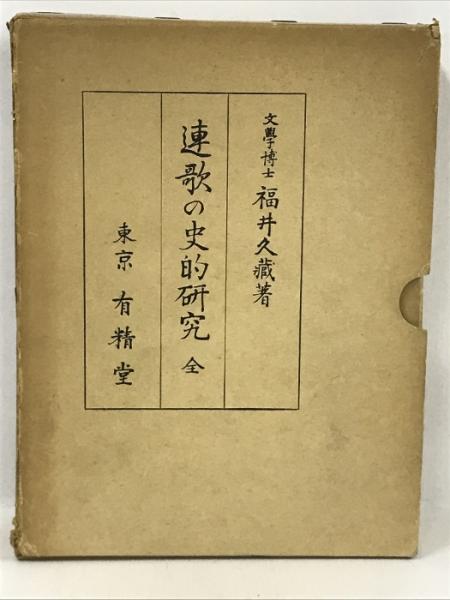 文學博士 福井久藏著
連歌の史的研究 全
東京 有精堂